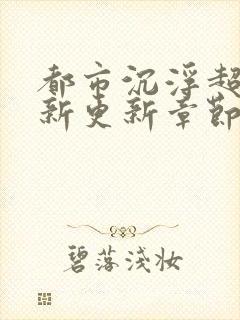 都市沉浮超
新更新章節
碧落淺妆